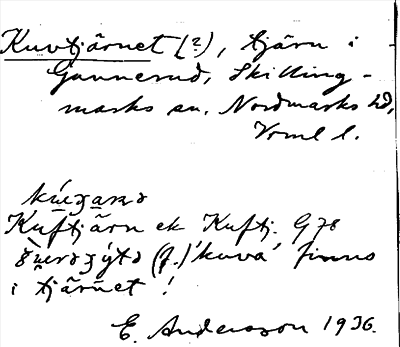 Kuvtjärnet (?), tjärn i
Gunnerud, Skilling-
marks sn. Nordmarks hd,
Vrml l.
Kuftjärn ek Kuftj. G 78
(f.) 'kuva' finns
i tjärnet!
E. Andersson 1936.